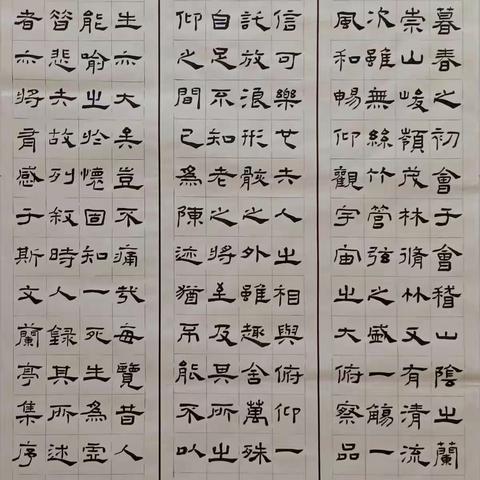 暮春之初會于會稽山陰之蘭
崇山峻嶺茂林脩林又有清流
次雖無絲竹管弦之盛一觴一
風和暢仰觀宇宙之大俯察品
信可樂也夫人之相與俯仰一
託放浪形骸之外雖趣舍萬殊
自足不知老之將至及其所之
仰之間已為陳迹猶不能不以
生亦大矣豈不痛哉每覽昔人
能喻之於懷固知一死生為虛
皆悲夫故列敘時人錄其所述
者亦將有感于斯文蘭亭集序